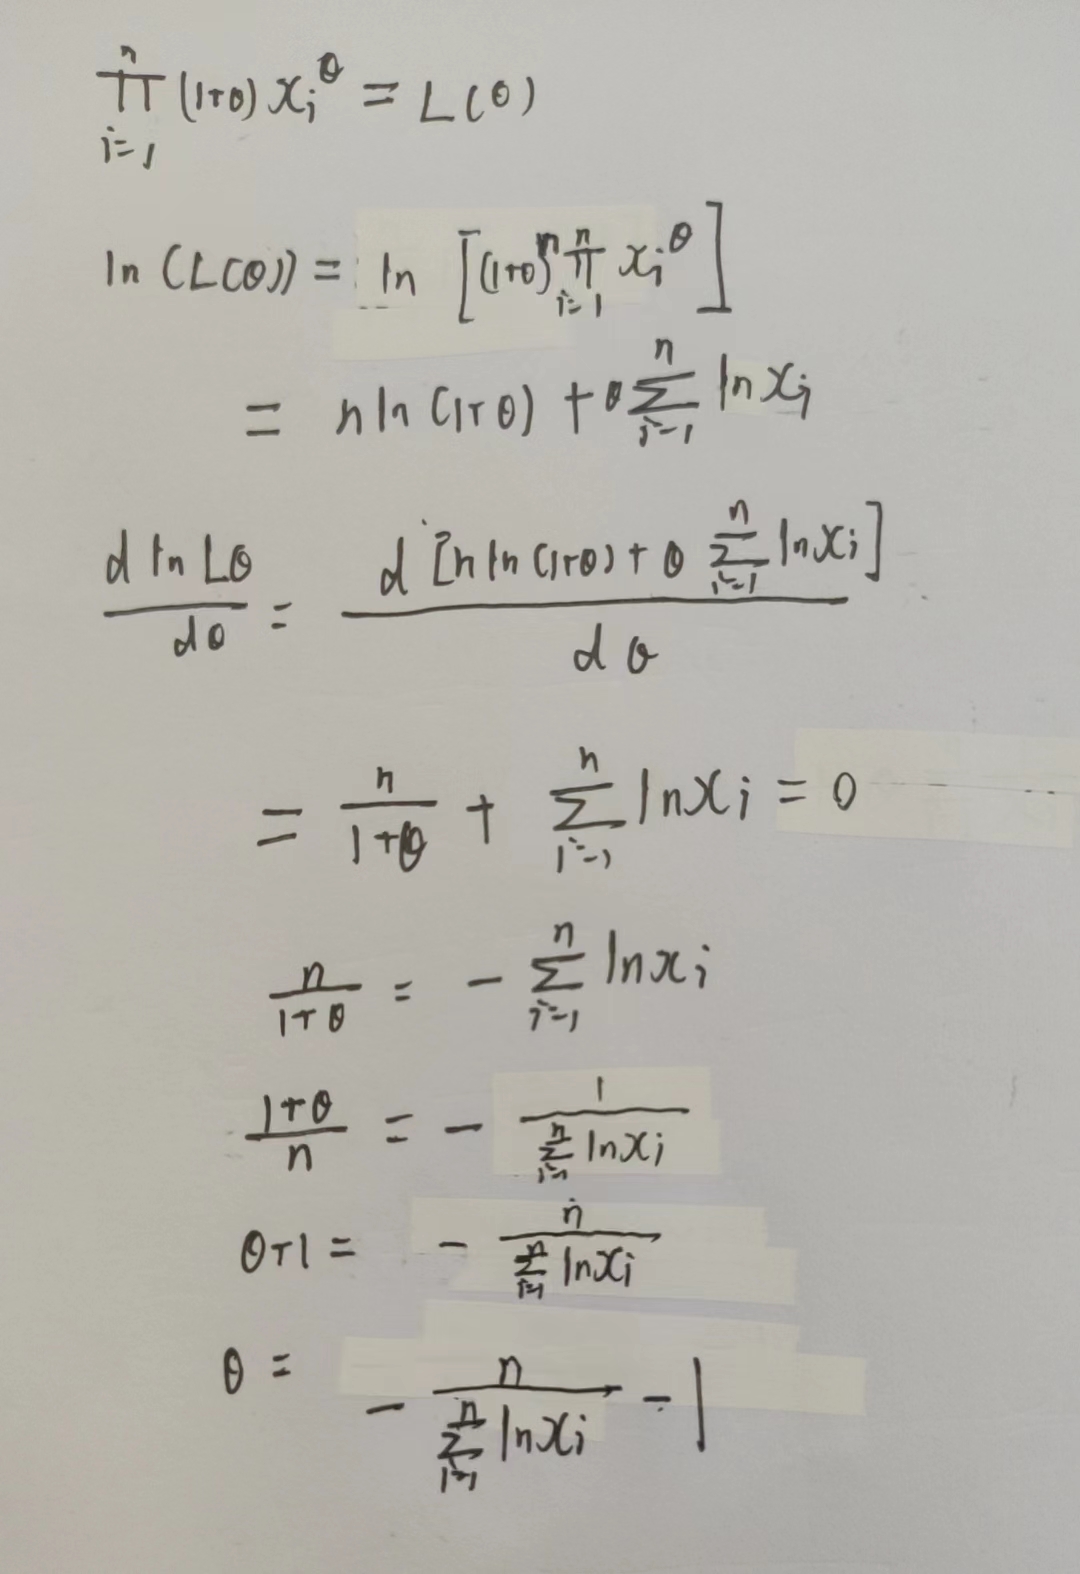 ∏_{i=1}^{n} (1+θ) x_i^θ = L(θ)
ln (L(θ)) = ln [(1+θ)^n ∏_{i=1}^{n} x_i^θ]
= n ln (1+θ) + θ ∑_{i=1}^{n} ln x_i
d ln Lθ / dθ = d [n ln (1+θ) + θ ∑_{i=1}^{n} ln x_i] / dθ
= n / (1+θ) + ∑_{i=1}^{n} ln x_i = 0
n / (1+θ) = - ∑_{i=1}^{n} ln x_i
(1+θ) / n = - 1 / ∑_{i=1}^{n} ln x_i
θ+1 = - n / ∑_{i=1}^{n} ln x_i
θ = - n / ∑_{i=1}^{n} ln x_i - 1